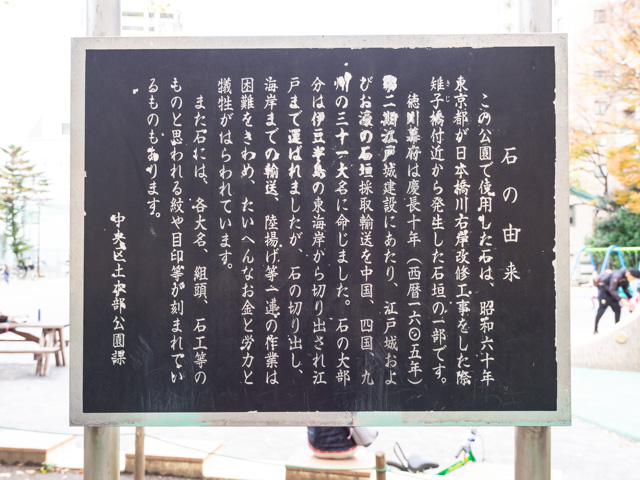 石の由来
この公園で使用した石は、昭和六十年
東京都が日本橋川右岸改修工事をした際
雉子橋付近から発生した石垣の一部です。
きじ
徳川幕府は慶長十年（西暦一六〇五年）
第二期江戸城建設にあたり、江戸城およ
びお濠の石垣採取輸送を中国、四国、九
州の三十一大名に命じました。石の大部
分は伊豆半島の東海岸から切り出され江
戸まで運ばれましたが、石の切り出し、
海岸までの輸送、陸揚げ等一連の作業は
困難をきわめ、たいへんなお金と労力と
犠牲がはらわれています。
また石には、各大名、組頭、石工等の
ものと思われる紋や目印等が刻まれてい
るものもあります。
中央区土木部公園課